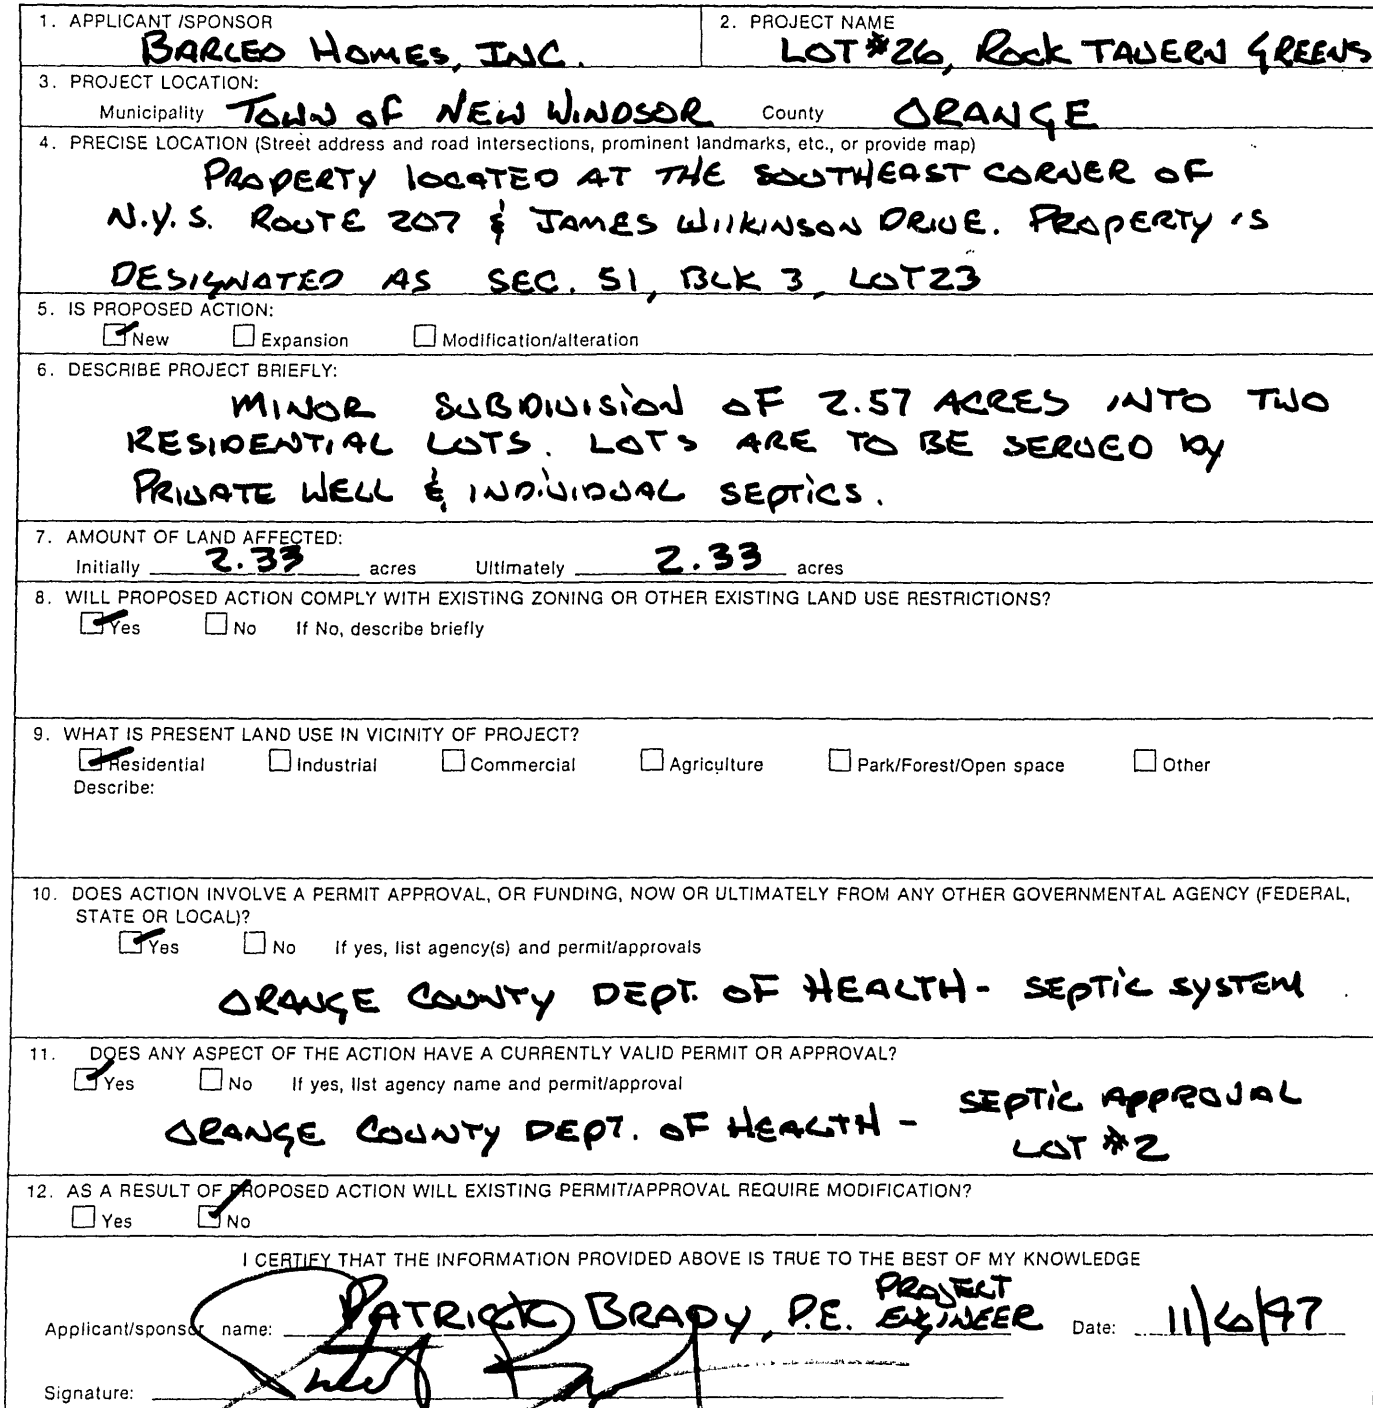 1. APPLICANT /SPONSOR
BARCEO HOMES, INC.
2. PROJECT NAME
LOT #26, ROCK TAVERN GREENS
3. PROJECT LOCATION:
Municipality TOWN OF NEW WINDSOR County ORANGE
4. PRECISE LOCATION (Street address and road intersections, prominent landmarks, etc., or provide map)
PROPERTY LOCATED AT THE SOUTHEAST CORNER OF
N.Y.S. ROUTE 207 & JAMES WILKINSON DRIVE. PROPERTY IS
DESIGNATED AS SEC. 51, BLK 3, LOT 23
5. IS PROPOSED ACTION:
New Expansion Modification/alteration
6. DESCRIBE PROJECT BRIEFLY:
MINOR SUBDIVISION OF 2.57 ACRES INTO TWO
RESIDENTIAL LOTS. LOTS ARE TO BE SERVED BY
PRIVATE WELL & INDIVIDUAL SEPTICS.
7. AMOUNT OF LAND AFFECTED:
Initially 2.33 acres Ultimately 2.33 acres
8. WILL PROPOSED ACTION COMPLY WITH EXISTING ZONING OR OTHER EXISTING LAND USE RESTRICTIONS?
Yes No If No, describe briefly
9. WHAT IS PRESENT LAND USE IN VICINITY OF PROJECT?
Residential Industrial Commercial Agriculture Park/Forest/Open space Other
Describe:
10. DOES ACTION INVOLVE A PERMIT APPROVAL, OR FUNDING, NOW OR ULTIMATELY FROM ANY OTHER GOVERNMENTAL AGENCY (FEDERAL,
STATE OR LOCAL)?
Yes No If yes, list agency(s) and permit/approvals
ORANGE COUNTY DEPT. OF HEALTH - SEPTIC SYSTEM
11. DOES ANY ASPECT OF THE ACTION HAVE A CURRENTLY VALID PERMIT OR APPROVAL?
Yes No If yes, list agency name and permit/approval
ORANGE COUNTY DEPT. OF HEALTH - SEPTIC APPROVAL
LOT #2
12. AS A RESULT OF PROPOSED ACTION WILL EXISTING PERMIT/APPROVAL REQUIRE MODIFICATION?
Yes No
I CERTIFY THAT THE INFORMATION PROVIDED ABOVE IS TRUE TO THE BEST OF MY KNOWLEDGE
Applicant/sponsor name: PATRICK BRADY, P.E. PROJECT ENGINEER Date: 11/6/97
Signature: